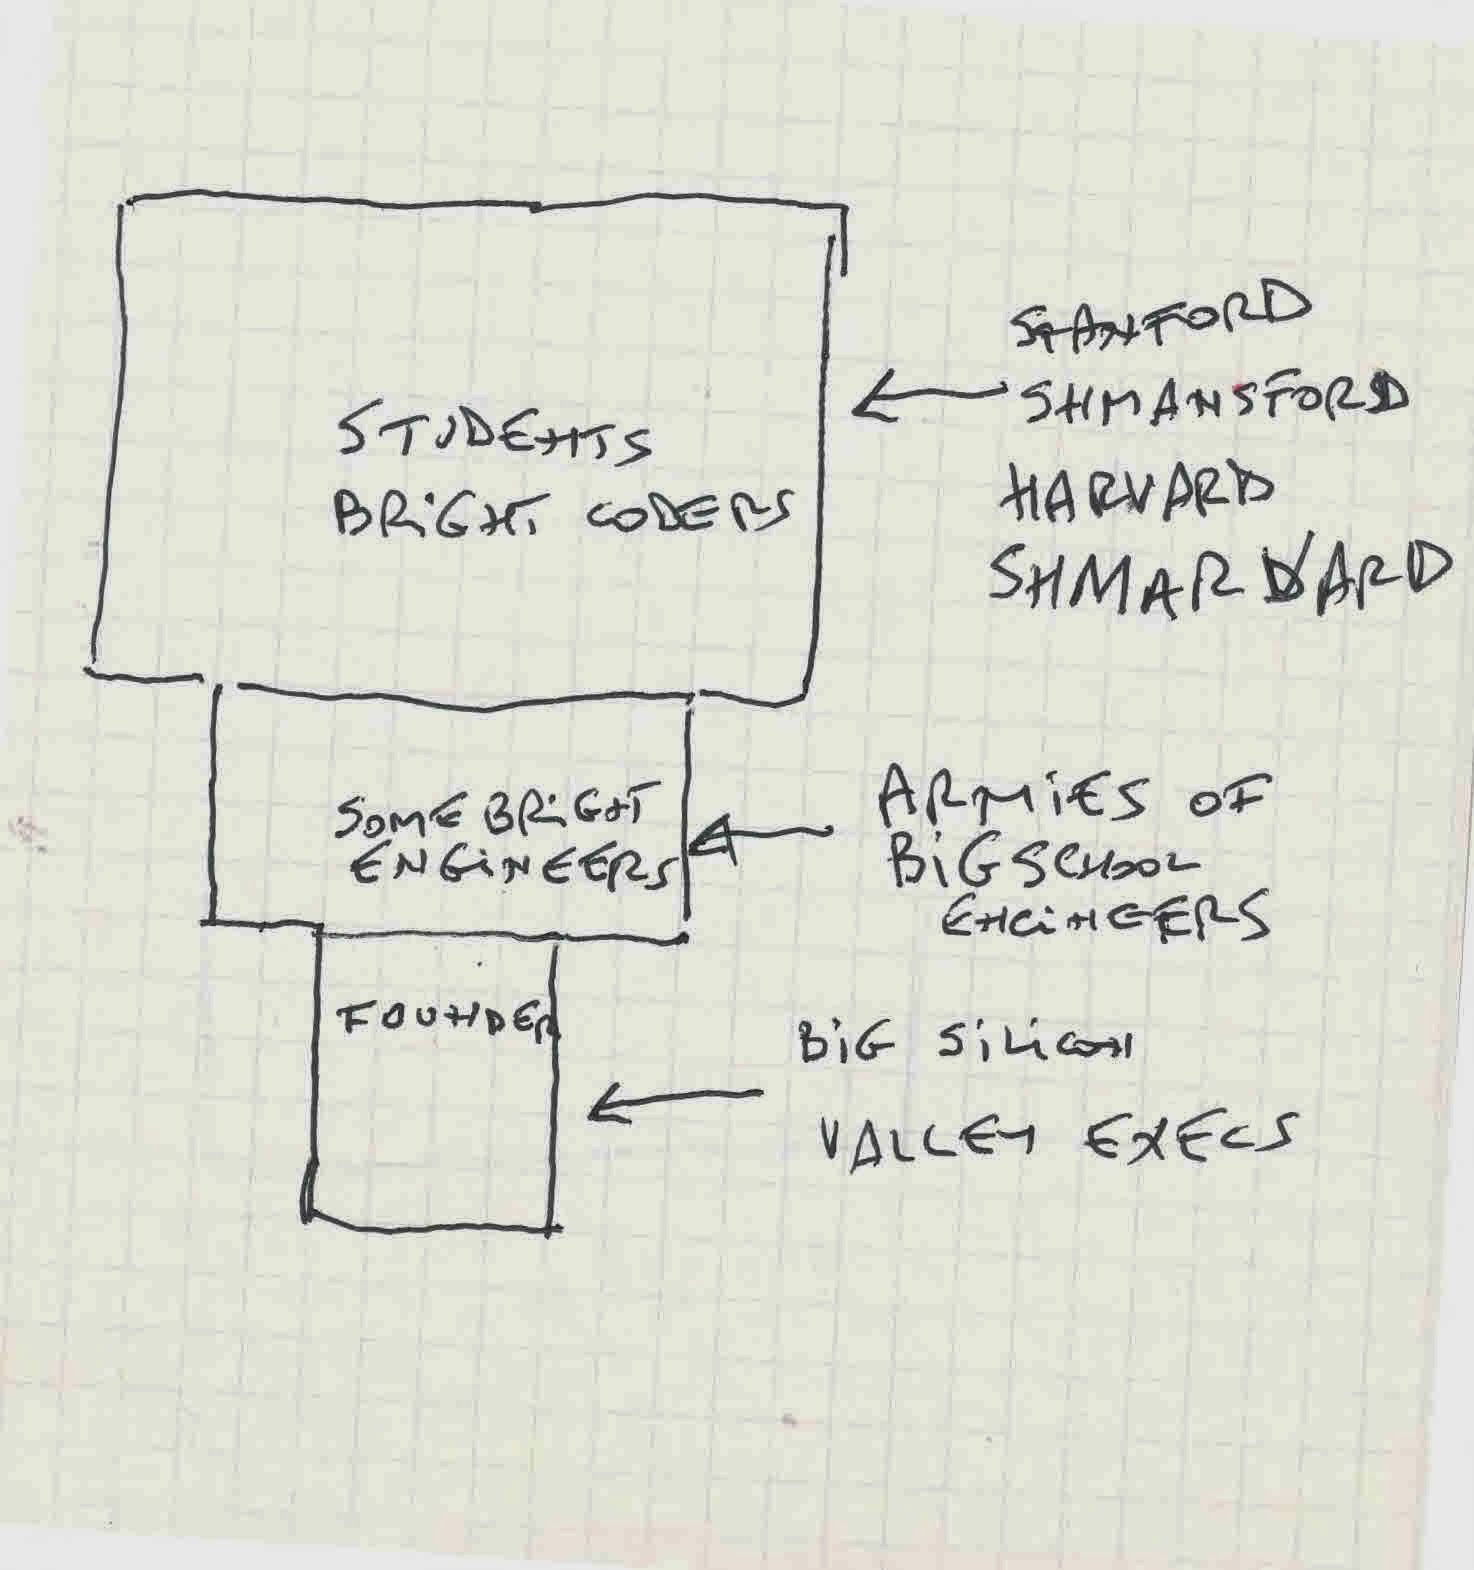 STANFORD
SHMANSFORD
STUDENTS
HARVARD
BRiGHT CODERS
SHMARDVARD
SOME BRiGHT
ENGiNEERS
ARMiES OF
BiG SCHOOL
ENGiNEERS
FOUNDER
BiG SiLiCON
VALLEY EXECS